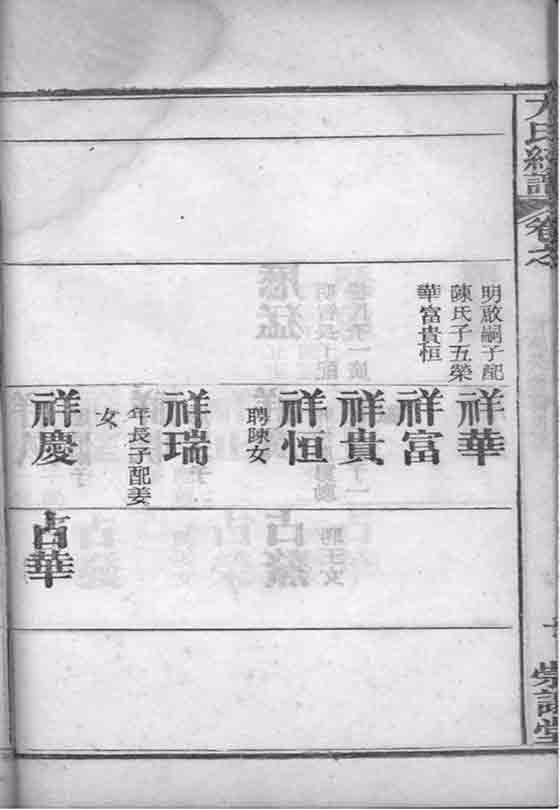 卷之
明啟嗣子配
陳氏子五榮
華富貴恒
祥華
祥富
祥貴
祥恒
聘陳女
祥瑞
年長子配姜
女
祥慶
占華